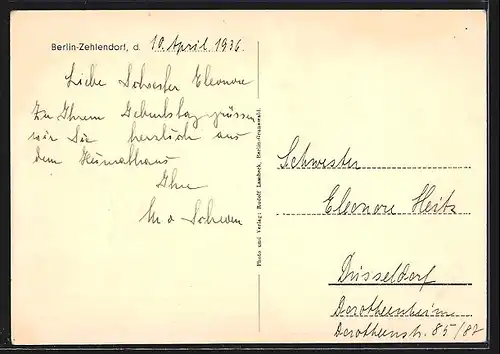 Berlin-Zehlendorf, d. 10. April 1936
Liebe Schwester Eleonore
Zu Ihrem Geburtstag grüssen
wir Sie herzlich aus
dem Heimathaus
Ihre
M v Scheven
Photo und Verlag: Rudolf Lambeck, Berlin-Grunewald.
Schwester
Eleonore Heitz
Düsseldorf
Dorotheenheim
Dorotheenstr. 85/87